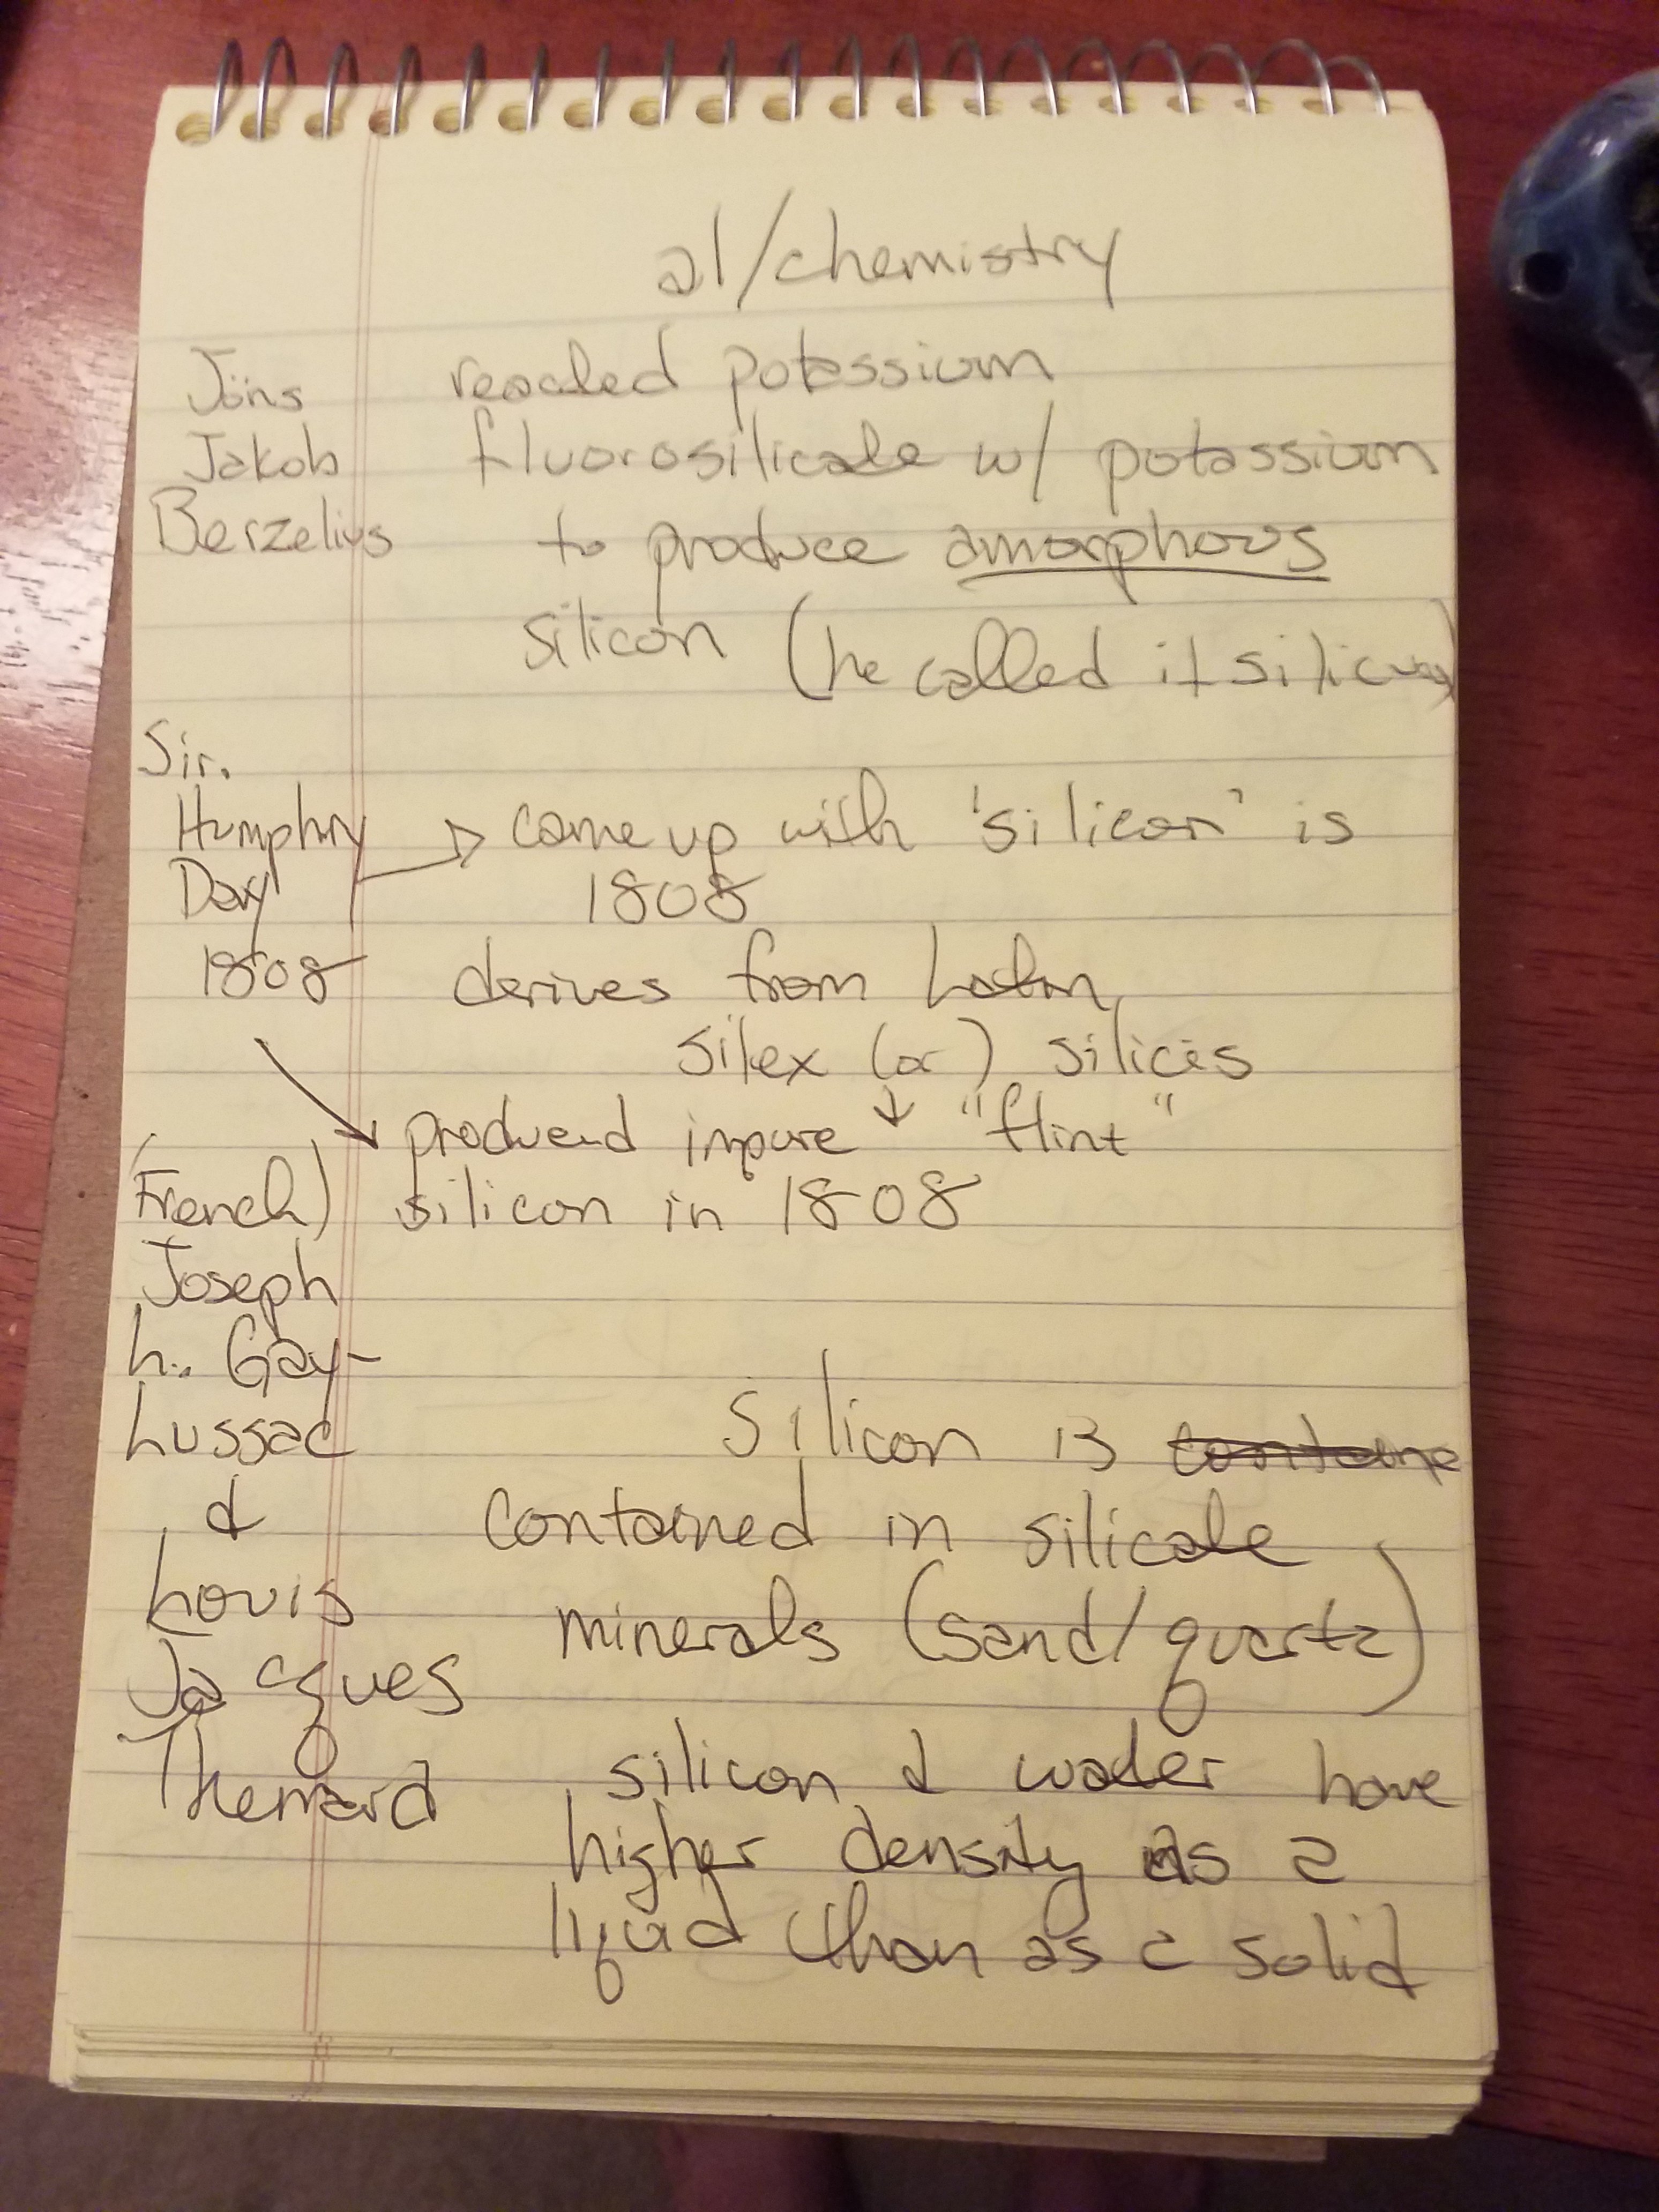 al/chemistry
Jöns reacted potassium
Jakob fluorosilicate w/ potassium
Berzelius to produce amorphous
silicon (he called it
Sir.
Humphry came up with 'silicon' is
Davy 1808
1808 derives from Latin
silex (or) silicis
produced impure "flint"
(French) silicon in 1808
Joseph
L. Gay-
Lussac silicon is containe
& contained in silicate
Louis minerals (sand/quartz)
Jacques
Thernard silicon & water have
higher density as a
liquid than as a solid